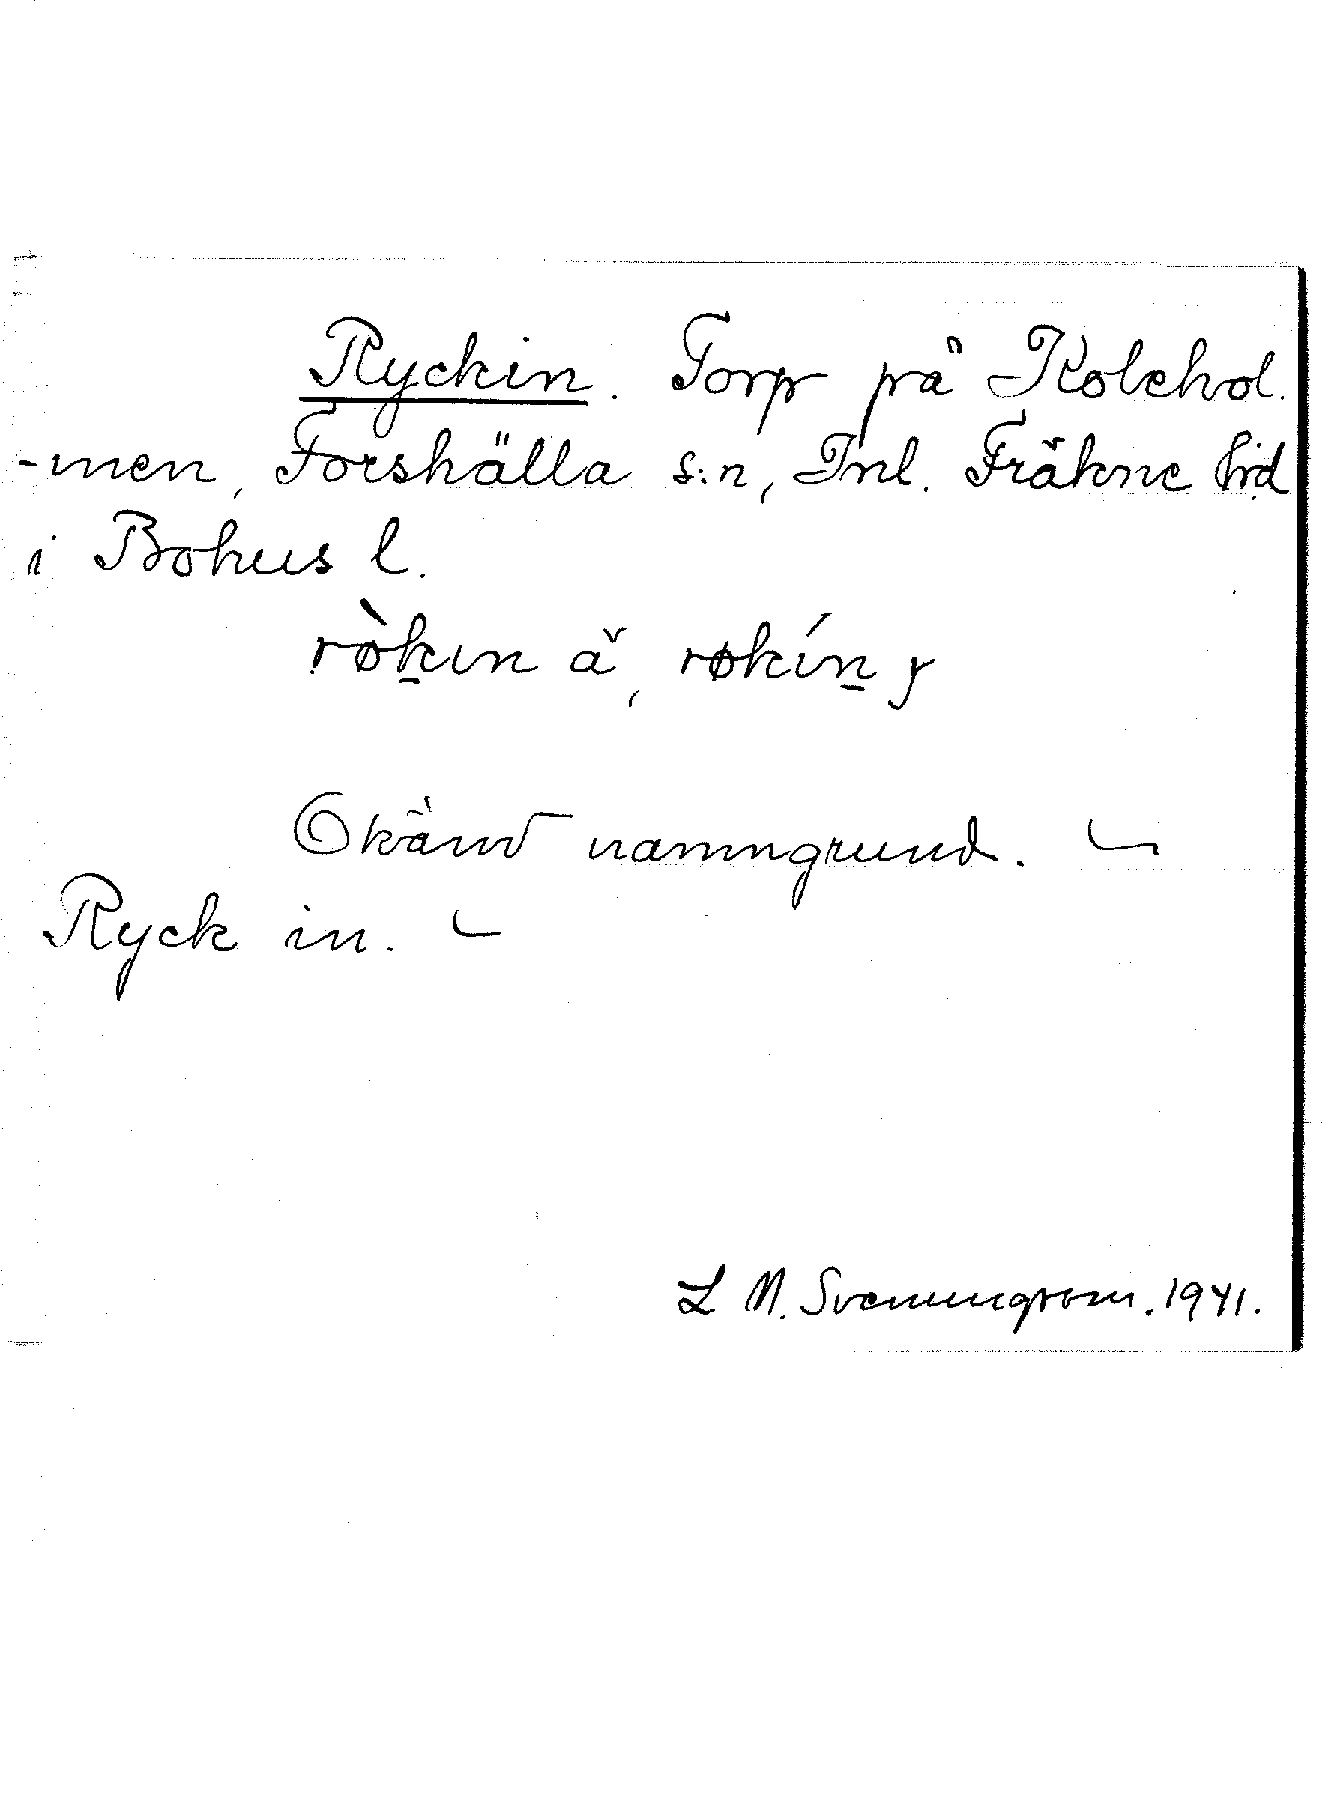 Ryckin. Torp på Kolchol
-men, Forshälla s:n, Inl. Fräkne hrd
i Bohus l.
rø̀kın ä, røkín y
Okänd namngrund.
Ryck in.
L M. Svenungsson. 1941.